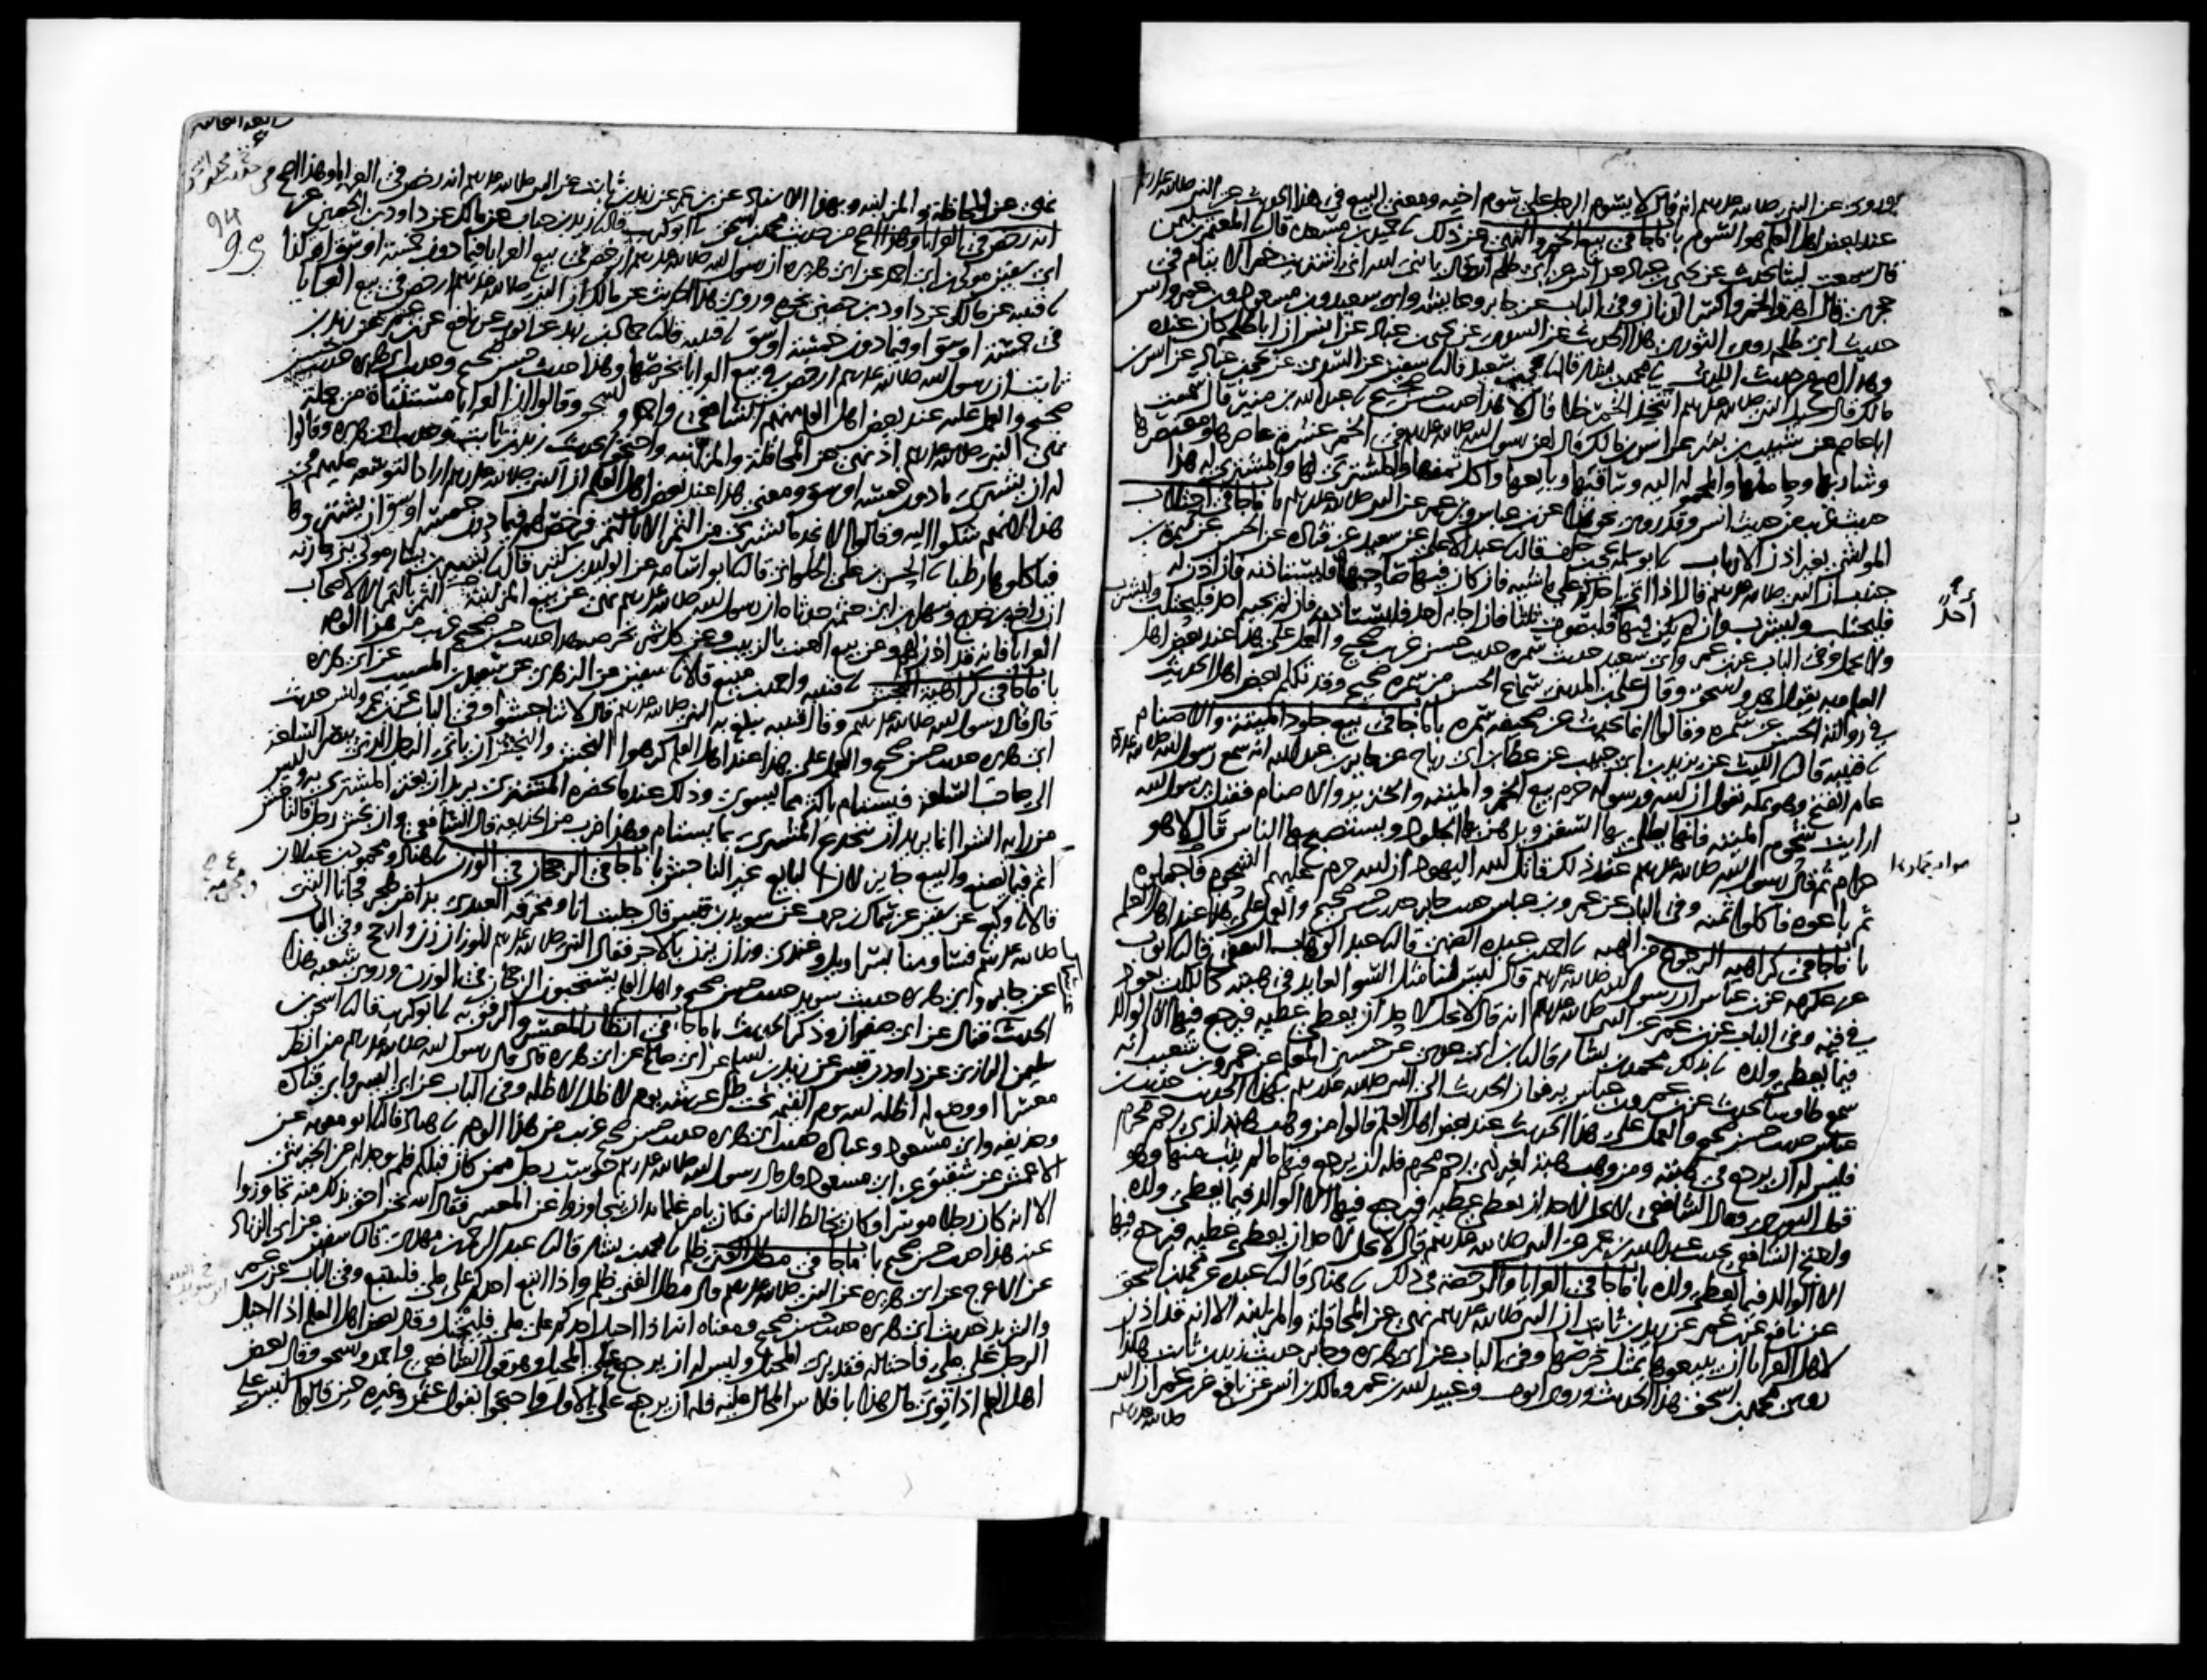 وروى عن النبي صلى الله عليه وسلم انه قال لا يسوم الرجل على سوم اخيه ومعنى البيع في هذا الحديث عن النبي صلى الله عليه وسلم
عند بعض اهل العلم هو السوم باب ما جا في بيع الخمر والنهي عن ذلك حميد بن مسعدة قال المعتمر بن سليمن
قال سمعت ليثا يحدث عن يحيى بن عباد عن انس عن ابي طلحة انه قال يا نبي الله اني اشتريت خمرا لايتام في
حجري قال اهرق الخمر واكسر الدنان وفي الباب عن جابر وعايشة وابي سعيد وبن مسعود وبن عمر وانس
حديث ابي طلحة روى الثوري هذا الحديث عن السدي عن يحيى بن عباد عن انس ان ابا طلحة كان عنده
وهذا اصح من حديث الليث محمد بن بشار قال يحيى بن سعيد قال سفين عن السدي عن يحيى بن عباد عن انس بن
مالك قال سيل النبي صلى الله عليه وسلم ايتخذ الخمر خلا قال لا هذا حديث حسن صحيح عبد الله بن منير قال سمعت
ابا عاصم عن شبيب بن بشر عن انس بن مالك قال لعن رسول الله صلى الله عليه وسلم في الخمر عشرة عاصرها ومعتصرها
وشاربها وحاملها والمحمولة اليه وساقيها وبايعها واكل ثمنها والمشتري لها والمشتراة له هذا
حديث غريب من حديث انس وقد روى نحو هذا عن بن عباس وبن عمر عن النبي صلى الله عليه وسلم باب ما جا في احتلاب
المواشي بغير اذن الارباب ابو سلمة يحيى بن خلف قال عبد الاعلى عن سعيد عن قتادة عن الحسن عن سمرة بن
جندب ان النبي صلى الله عليه وسلم قال اذا اتى احدكم على ماشية فان كان فيها صاحبها فليستاذنه فان اذن له
فليحتلب وليشرب وان لم يكن فيها فليصوت ثلثا فان اجابه احد فليستاذنه فان لم يجبه احد فليحتلب وليشرب
ولا يحمل وفي الباب عن بن عمر وابي سعيد حديث سمرة حديث حسن غريب صحيح والعمل على هذا عند بعض اهل
العلم وبه يقول احمد واسحق وقال علي بن المديني سماع الحسن من سمرة صحيح وقد تكلم بعض اهل الحديث
في رواية الحسن عن سمرة وقالوا انما يحدث عن صحيفة سمرة باب ما جا في بيع جلود الميتة والاصنام
قتيبة قال الليث عن يزيد بن ابي حبيب عن عطا بن ابي رباح عن جابر بن عبد الله انه سمع رسول الله صلى الله عليه وسلم
عام الفتح وهو بمكة يقول ان الله ورسوله حرم بيع الخمر والميتة والخنزير والاصنام فقيل يرسول الله
ارايت شحوم الميتة فانها يطلى بها السفن ويدهن بها الجلود ويستصبح بها الناس قال لا هو
حرام ثم قال رسول الله صلى الله عليه وسلم عند ذلك قاتل الله اليهود ان الله حرم عليهم الشحوم فاجملوه
ثم باعوه فاكلوا ثمنه وفي الباب عن عمر وبن عباس حديث جابر حديث حسن صحيح والعمل على هذا عند اهل العلم
باب ما جا في كراهية الرجوع من الهبة احمد بن عبدة الضبي قال عبد الوهاب الثقفي قال ايوب
عن عكرمة عن بن عباس ان رسول الله صلى الله عليه وسلم قال ليس لنا مثل السوء العايد في هبته كالكلب يعود
في قيئه وفي الباب عن بن عمر عن النبي صلى الله عليه وسلم انه قال لا يحل لاحد ان يعطي عطية فيرجع فيها الا الوالد
فيما يعطي ولده بذلك محمد بن بشار قال بن ابي عدي عن حسين المعلم عن عمرو بن شعيب انه
سمع طاوسا يحدث عن بن عمر وبن عباس يرفعان الحديث الى النبي صلى الله عليه وسلم بهذا الحديث حديث بن
عباس حديث حسن صحيح والعمل على هذا الحديث عند بعض اهل العلم قالوا من وهب هبة لذي رحم محرم
فليس له ان يرجع في هبته ومن وهب هبة لغير ذي رحم محرم فله ان يرجع فيها ما لم يثب منها وهو
قول الثوري وقال الشافعي لا يحل لاحد ان يعطي عطية فيرجع فيها الا الوالد فيما يعطي ولده
واحتج الشافعي بحديث عبد الله بن عمر عن النبي صلى الله عليه وسلم قال لا يحل لاحد ان يعطي عطية فيرجع فيها
الا الوالد فيما يعطي ولده باب ما جا في العرايا والرخصة في ذلك هناد قال عبدة عن محمد بن اسحق
عن نافع عن بن عمر عن زيد بن ثابت ان النبي صلى الله عليه وسلم نهى عن المحاقلة والمزابنة الا انه قد اذن
لاهل العرايا ان يبيعوها بمثل خرصها وفي الباب عن ابي هريرة وجابر حديث زيد بن ثابت هكذا
روى محمد بن اسحق هذا الحديث وروى ايوب وعبيد الله بن عمر ومالك بن انس عن نافع عن بن عمر ان النبي
صلى الله عليه وسلم
احد
نهى عن المحاقلة والمزابنة وبهذا الاسناد عن بن عمر عن زيد بن ثابت عن النبي صلى الله عليه وسلم انه رخص في العرايا وهذا اصح من
انه رخص في العرايا وهذا اصح من حديث محمد بن اسحق ابو كريب قال زيد بن حباب عن مالك عن داود بن الحصين عن
ابي سفين مولى بن ابي احمد عن ابي هريرة ان رسول الله صلى الله عليه وسلم ارخص في بيع العرايا فيما دون خمسة اوسق او كذا
قتيبة عن مالك عن داود بن حصين نحوه وروى هذا الحديث عن مالك ان النبي صلى الله عليه وسلم ارخص في بيع العرايا
في خمسة اوسق او فيما دون خمسة اوسق قتيبة قال حماد بن زيد عن ايوب عن نافع عن بن عمر عن زيد بن
ثابت ان رسول الله صلى الله عليه وسلم ارخص في بيع العرايا بخرصها وهذا حديث حسن صحيح وحديث ابي هريرة حديث حسن
صحيح والعمل عليه عند بعض اهل العلم منهم الشافعي واحمد واسحق وقالوا ان العرايا مستثناة من جملة
نهي النبي صلى الله عليه وسلم اذ نهى عن المحاقلة والمزابنة واحتجوا بحديث زيد بن ثابت وحديث ابي هريرة وقالوا
له ان يشتري ما دون خمسة اوسق ومعنى هذا عند بعض اهل العلم ان النبي صلى الله عليه وسلم اراد التوسعة عليهم في
هذا لانهم شكوا اليه وقالوا لا نجد ما نشتري من الثمر الا بالتمر فرخص لهم فيما دون خمسة اوسق ان يشتروها
فياكلوها رطبا الحسن بن علي الحلواني قال ابو اسامة عن الوليد بن كثير قال بشير بن يسار مولى بني حارثة
ان رافع بن خديج وسهل بن ابي حثمة حدثاه ان رسول الله صلى الله عليه وسلم نهى عن بيع المزابنة الثمر بالتمر الا لاصحاب
العرايا فانه قد اذن لهم وعن بيع العنب بالزبيب وعن كل ثمر بخرصه هذا حديث حسن صحيح غريب من هذا الوجه
باب ما جا في كراهية النجش قتيبة واحمد بن منيع قالا سفين عن الزهري عن سعيد بن المسيب عن ابي هريرة
قال قال رسول الله صلى الله عليه وسلم وقال قتيبة يبلغ به النبي صلى الله عليه وسلم قال لا تناجشوا وفي الباب عن بن عمر وانس حديث
ابي هريرة حديث حسن صحيح والعمل على هذا عند اهل العلم كرهوا النجش والنجش ان ياتي الرجل الذي يبصر السلعة
الى صاحب السلعة فيستام باكثر مما يسوى وذلك عند ما يحضره المشتري يريد ان يغتر المشتري به وليس
من رايه الشرا انما يريد ان يخدع المشتري بما يستام وهذا ضرب من الخديعة قال الشافعي وان نجش رجل فالناجش
اثم فيما يصنع والبيع جايز لان البايع غير الناجش باب ما جا في الرجحان في الوزن هناد ومحمود بن غيلان
قالا وكيع عن سفين عن سماك بن حرب عن سويد بن قيس قال جلبت انا ومخرفة العبدي بزا من هجر فجانا النبي
صلى الله عليه وسلم فساومنا بسراويل وعندي وزان يزن بالاجر فقال النبي صلى الله عليه وسلم للوزان زن وارجح وفي الباب
عن جابر وابي هريرة حديث سويد حديث حسن صحيح واهل العلم يستحبون الرجحان في الوزن وروى شعبة هذا
الحديث فقال عن ابي صفوان وذكر الحديث باب ما جا في انظار المعسر والرفق به ابو كريب قال اسحق بن
سليمن الرازي عن داود بن قيس عن زيد بن اسلم عن ابي صالح عن ابي هريرة قال قال رسول الله صلى الله عليه وسلم من انظر
معسرا او وضع له اظله الله يوم القيمة تحت ظل عرشه يوم لا ظل الا ظله وفي الباب عن ابي اليسر وابي قتادة
وحذيفة وابي مسعود وعبادة حديث ابي هريرة حديث حسن صحيح غريب من هذا الوجه هناد قال ابو معوية عن
الاعمش عن شقيق عن ابي مسعود قال قال رسول الله صلى الله عليه وسلم حوسب رجل ممن كان قبلكم فلم يوجد له من الخير شي
الا انه كان رجلا موسرا وكان يخالط الناس فكان يامر غلمانه ان يتجاوزوا عن المعسر فقال الله نحن احق بذلك منه تجاوزوا
عنه هذا حديث حسن صحيح باب ما جا في مطل الغني ظلم محمد بن بشار قال عبد الرحمن بن مهدي قال سفين عن ابي الزناد
عن الاعرج عن ابي هريرة عن النبي صلى الله عليه وسلم قال مطل الغني ظلم واذا اتبع احدكم على ملي فليتبع وفي الباب عن بن عمر
والشريد حديث ابي هريرة حديث حسن صحيح ومعناه انه اذا احيل احدكم على ملي فليحتل وقال بعض اهل العلم اذا احيل
الرجل على ملي فاحتاله فقد برئ المحيل وليس له ان يرجع على المحيل وهو قول الشافعي واحمد واسحق وقال بعض
اهل العلم اذا توى مال هذا بافلاس المحال عليه فله ان يرجع على الاول واحتجوا بقول عثمن وغيره حين قالوا ليس على
94
95